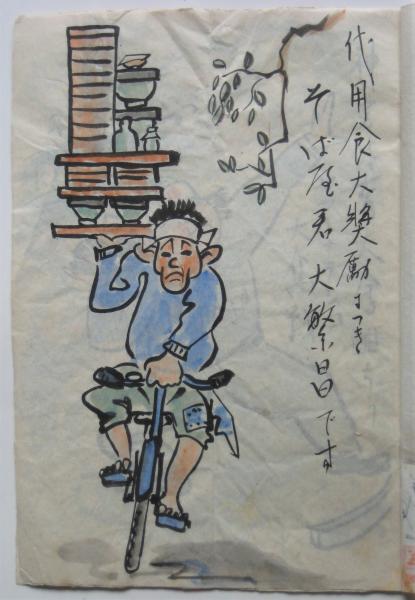 代用食大奨励につき
そば屋君大繁昌です